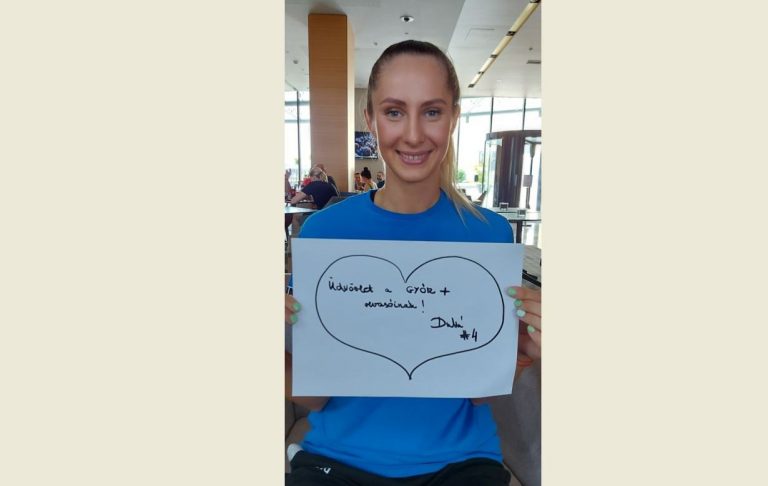 Üdvözlet a GYŐR +
olvasóinak!
#4